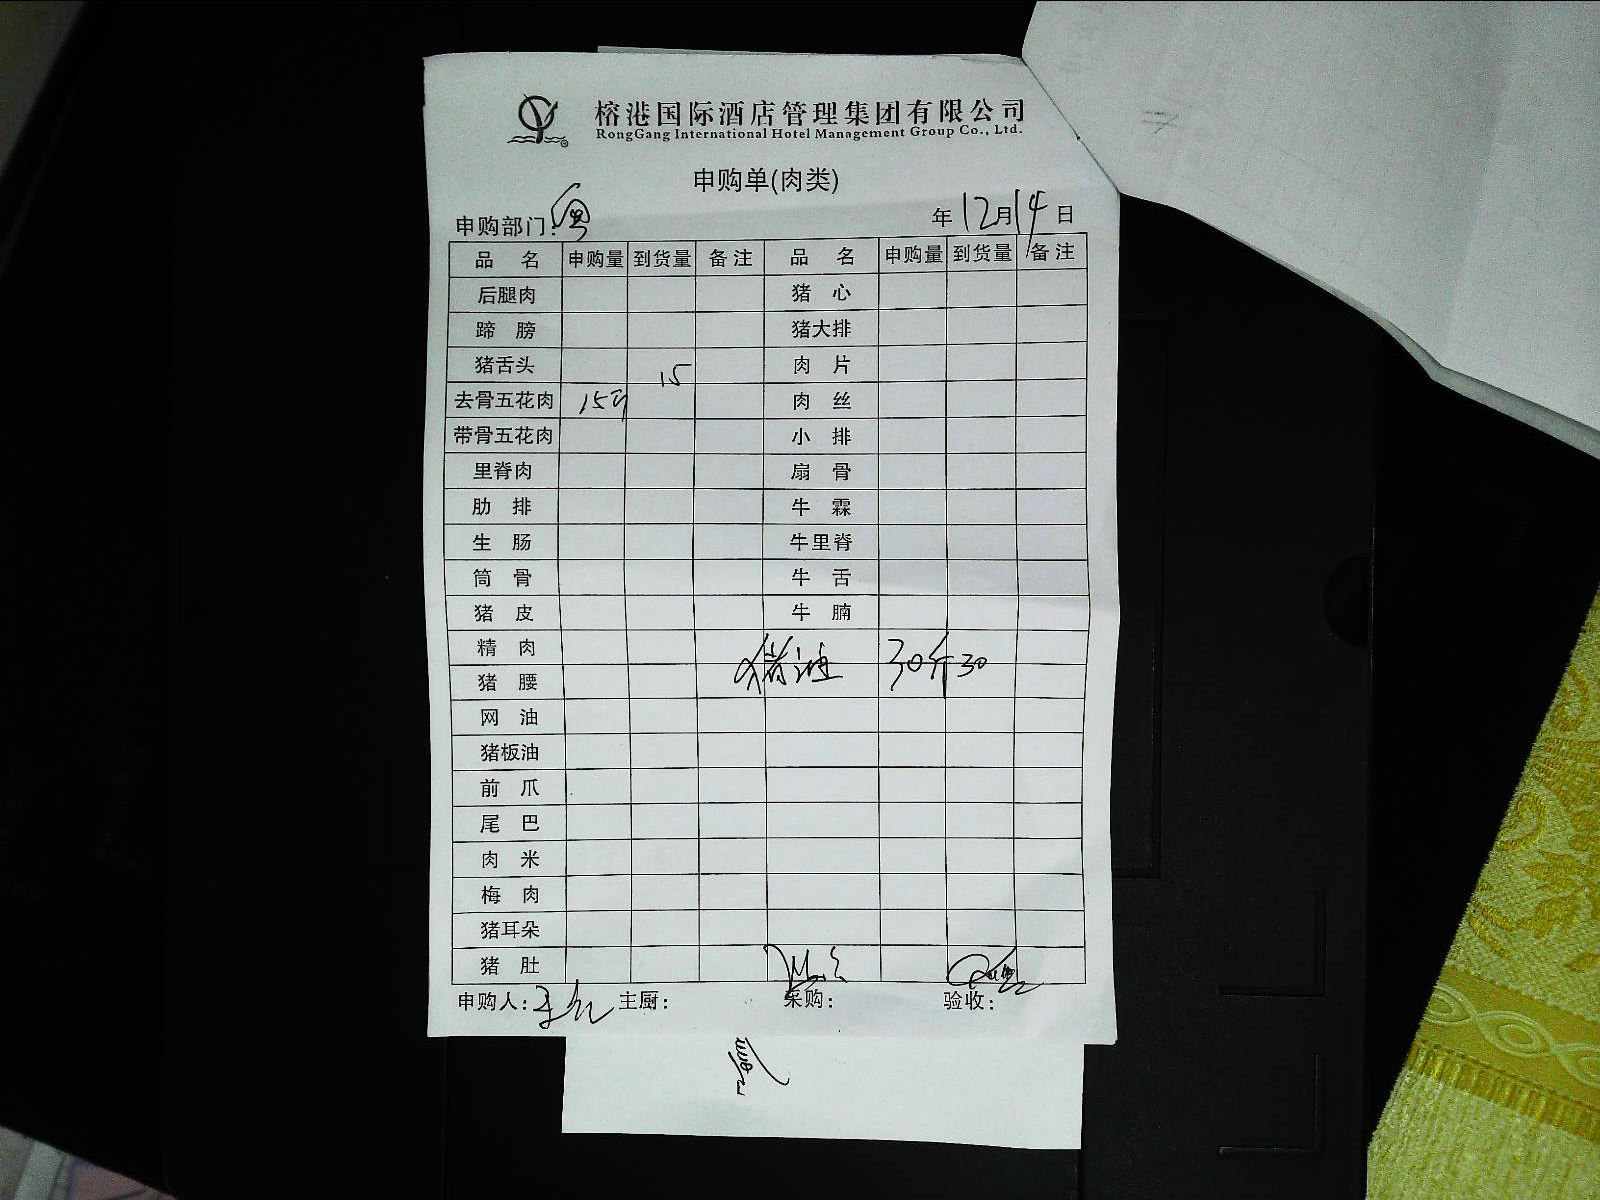 榕港国际酒店管理集团有限公司
RongGang International Hotel Management Group Co., Ltd.
申购单(肉类)
申购部门: 粤 年 12月14日
品 名 申购量 到货量 备注 品 名 申购量 到货量 备注
后腿肉 猪 心
蹄 膀 猪大排
猪舌头 15 肉 片
去骨五花肉 15斤 肉 丝
带骨五花肉 小 排
里脊肉 扇 骨
肋 排 牛 霖
生 肠 牛里脊
筒 骨 牛 舌
猪 皮 牛 腩
精 肉 猪油 30斤 30
猪 腰
网 油
猪板油
前 爪
尾 巴
肉 米
梅 肉
猪耳朵
猪 肚
申购人: 主厨: 采购: 验收: